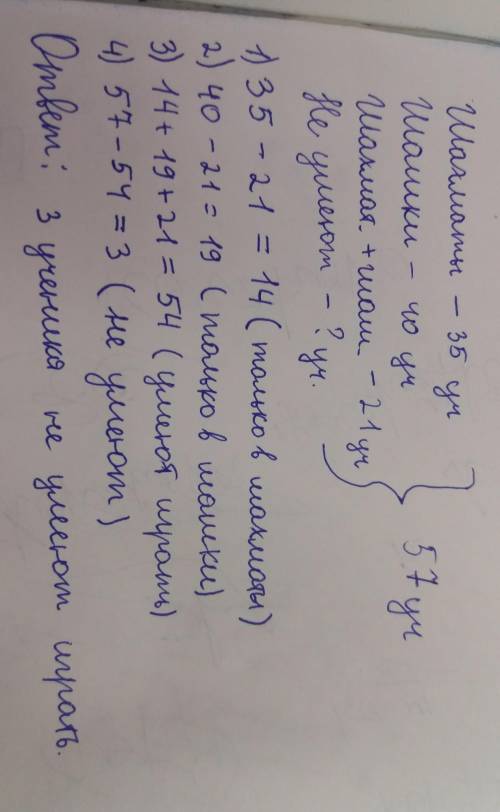 Шахматы - 35 уч
Шашки - 40 уч
Шахмат + шаш - 21 уч
57 уч
Не умеют - ? уч.
1) 35 - 21 = 14 (только в шахматы)
2) 40 - 21 = 19 (только в шашки)
3) 14 + 19 + 21 = 54 (умеют играть)
4) 57 - 54 = 3 (не умеют)
Ответ: 3 ученика не умеют играть.